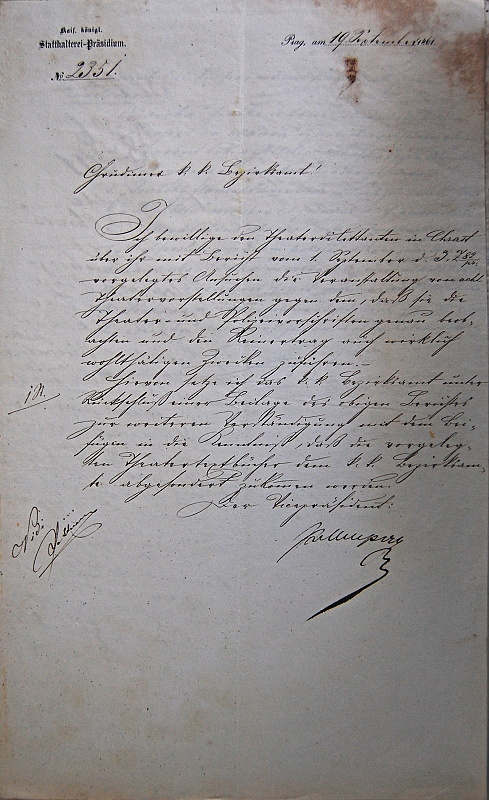 Kais. königl.
Statthalterei-Präsidium.
№ 2351.
Prag, am 19. September 1861
Chrudimer k. k. Bezirksamt!
Ich bewillige den Theaterdilettanten in Chrast
über ihr mit Bericht vom 1. September d. J. Z.
vorgelegtes Ansuchen die Veranstaltung von acht
Theatervorstellungen gegen dem, daß sie die
Theater- und Polizeivorschriften genau beob-
achten und den Reinertrag auch wirklich
wohlthätigen Zwecken zuführen.-
Hievon setze ich das k. k. Bezirksamt unter
Rückschluß einer Beilage des obigen Berichtes
zur weiteren Verständigung mit dem Bei-
fügen in die Kenntniß, daß die vorgeleg-
ten Theatertextbücher dem k. k. Bezirksam-
te abgesondert zukommen werden.
Der Vicepräsident: